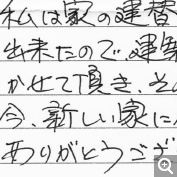 私は家の建替
出来たので、建築
かせて頂き、そ
今、新しい家に
ありがとうござ